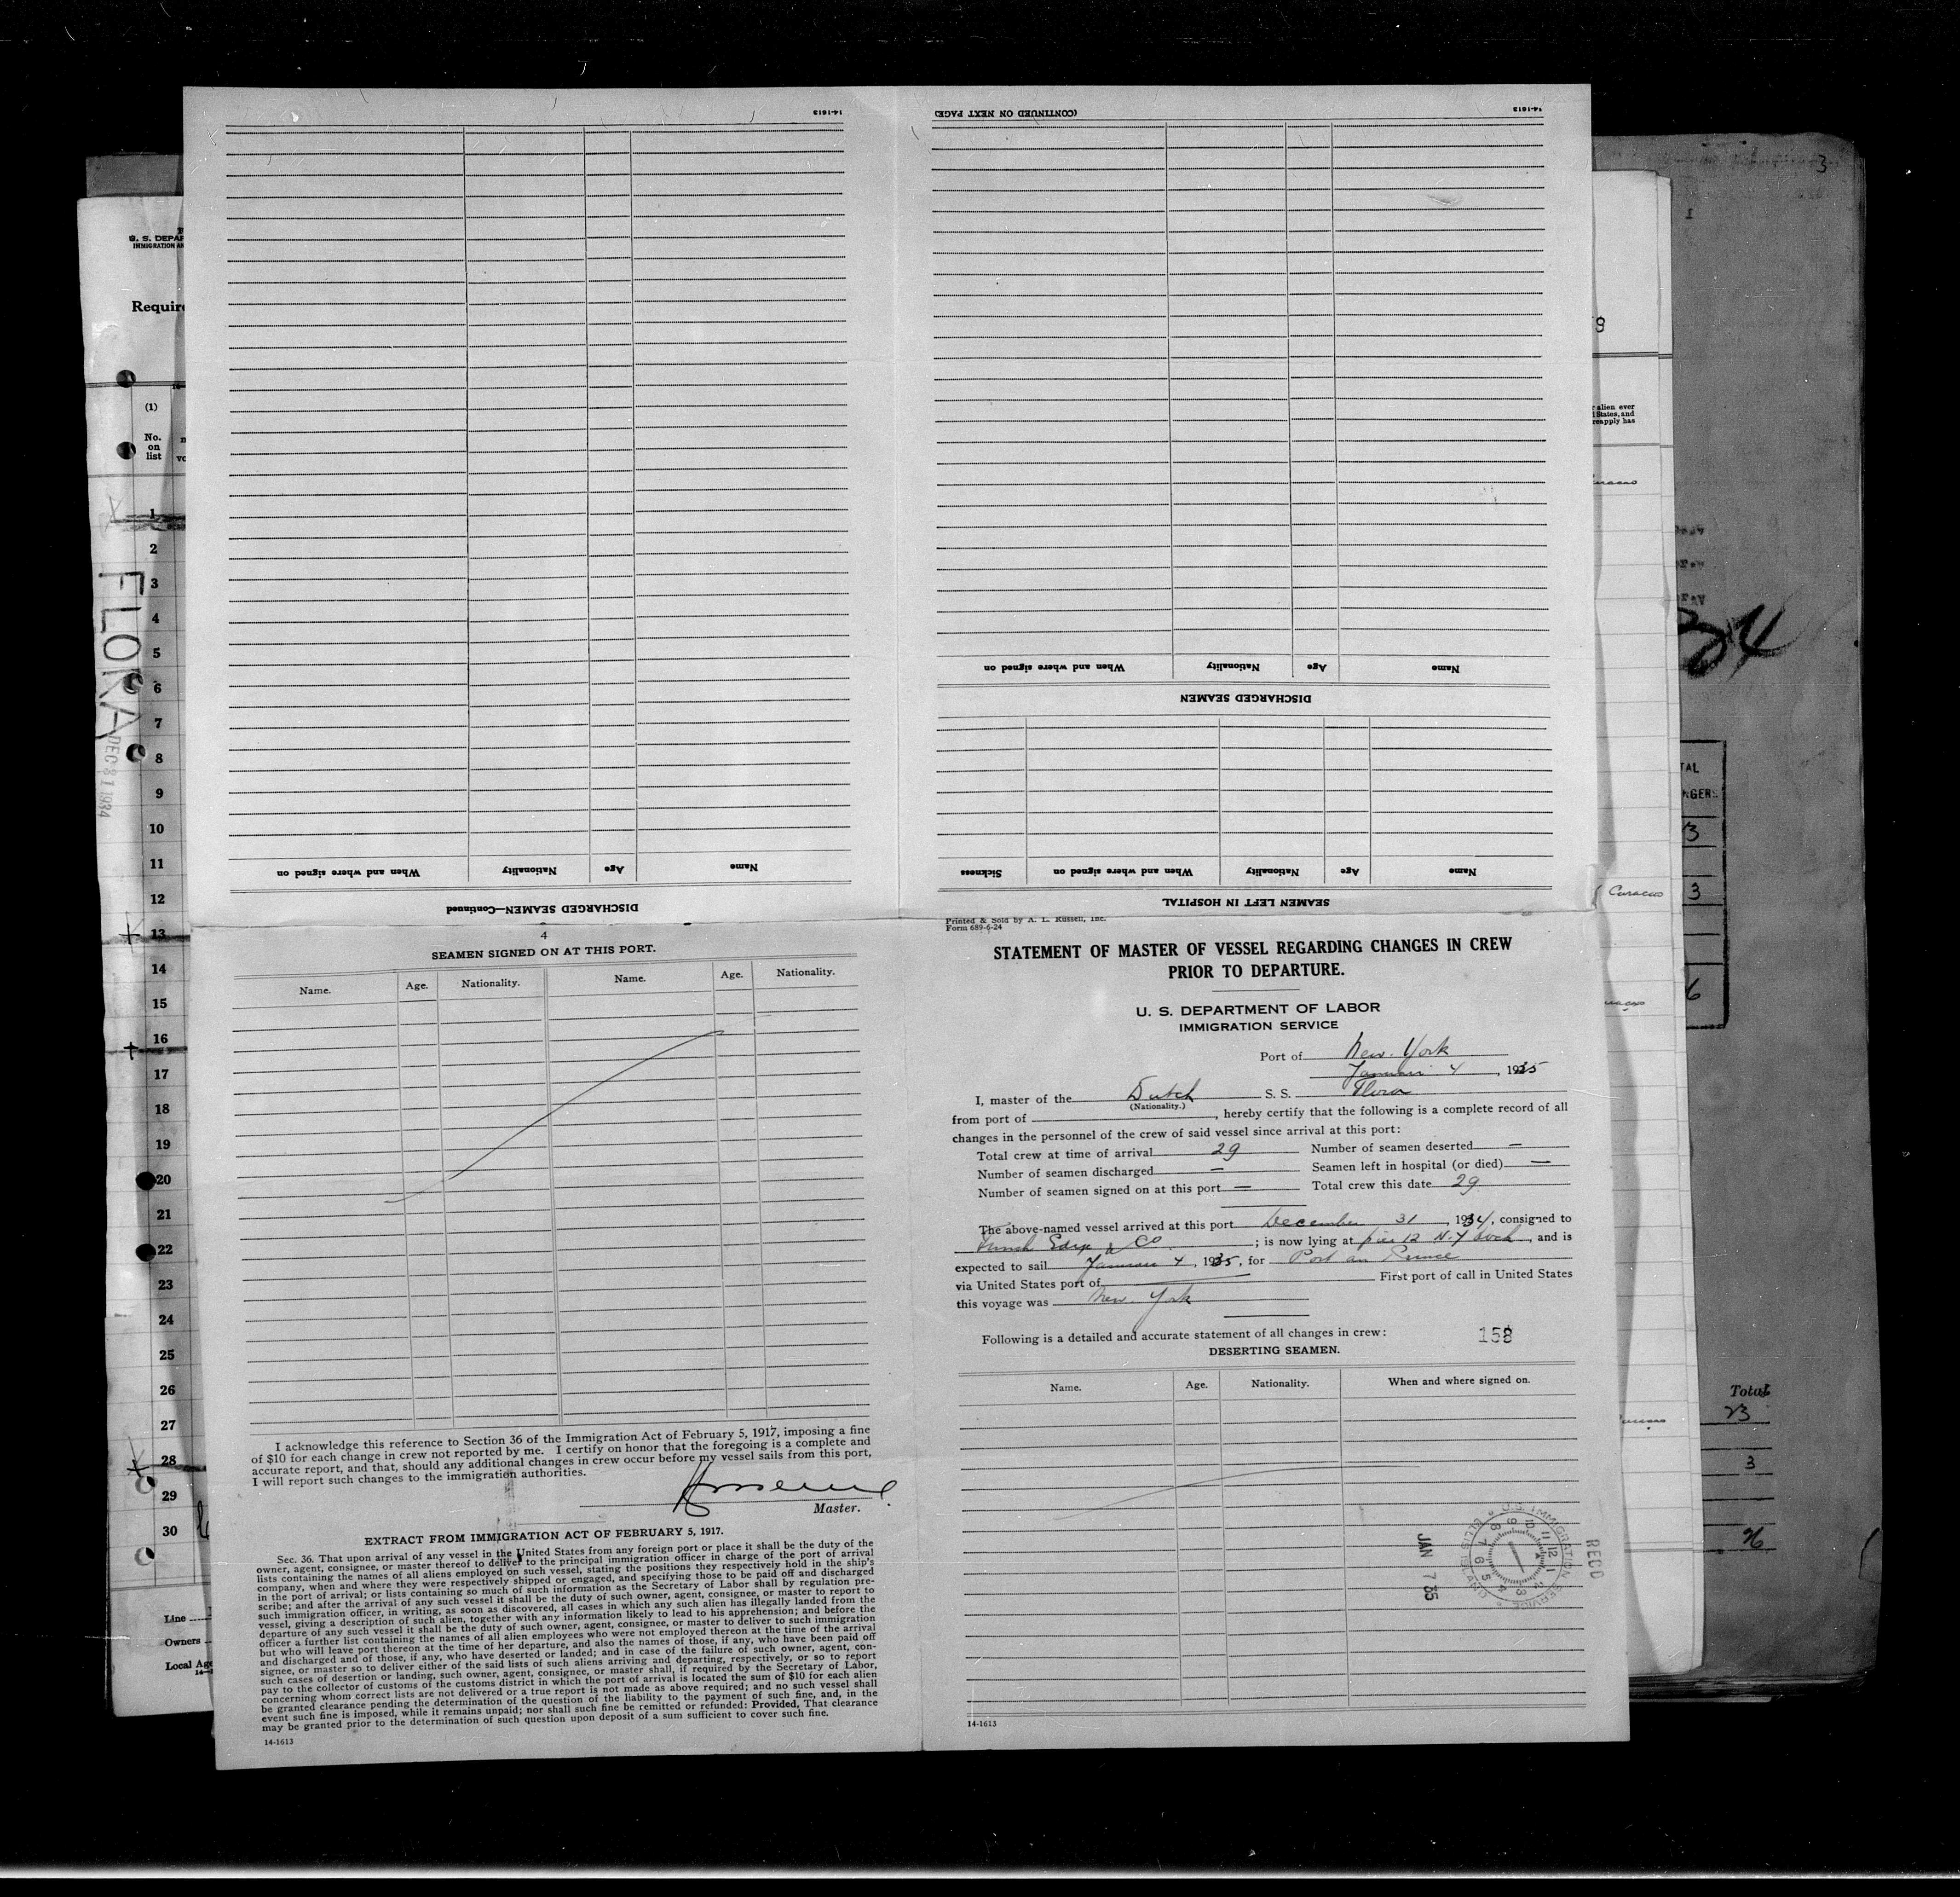 14-1613
DISCHARGED SEAMEN—Continued
Name
Age
Nationality
When and where signed on
SEAMEN LEFT IN HOSPITAL
Name
Age
Nationality
When and where signed on
Sickness
DISCHARGED SEAMEN
Name
Age
Nationality
When and where signed on
(CONTINUED ON NEXT PAGE)
14-1613
4
SEAMEN SIGNED ON AT THIS PORT.
Name. Age. Nationality. Name. Age. Nationality.
I acknowledge this reference to Section 36 of the Immigration Act of February 5, 1917, imposing a fine
of $10 for each change in crew not reported by me. I certify on honor that the foregoing is a complete and
accurate report, and that, should any additional changes in crew occur before my vessel sails from this port,
I will report such changes to the immigration authorities.
Master.
EXTRACT FROM IMMIGRATION ACT OF FEBRUARY 5, 1917.
Sec. 36. That upon arrival of any vessel in the United States from any foreign port or place it shall be the duty of the
owner, agent, consignee, or master thereof to deliver to the principal immigration officer in charge of the port of arrival
lists containing the names of all aliens employed on such vessel, stating the positions they respectively hold in the ship's
company, when and where they were respectively shipped or engaged, and specifying those to be paid off and discharged
in the port of arrival; or lists containing so much of such information as the Secretary of Labor shall by regulation pre-
scribe; and after the arrival of any such vessel it shall be the duty of such owner, agent, consignee, or master to report to
such immigration officer, in writing, as soon as discovered, all cases in which any such alien has illegally landed from the
vessel, giving a description of such alien, together with any information likely to lead to his apprehension; and before the
departure of any such vessel it shall be the duty of such owner, agent, consignee, or master to deliver to such immigration
officer a further list containing the names of all alien employees who were not employed thereon at the time of the arrival
but who will leave port thereon at the time of her departure, and also the names of those, if any, who have been paid off
and discharged and of those, if any, who have deserted or landed; and in case of the failure of such owner, agent, con-
signee, or master so to deliver either of the said lists of such aliens arriving and departing, respectively, or so to report
such cases of desertion or landing, such owner, agent, consignee, or master shall, if required by the Secretary of Labor,
pay to the collector of customs of the customs district in which the port of arrival is located the sum of $10 for each alien
concerning whom correct lists are not delivered or a true report is not made as above required; and no such vessel shall
be granted clearance pending the determination of the question of the liability to the payment of such fine, and, in the
event such fine is imposed, while it remains unpaid; nor shall such fine be remitted or refunded: Provided, That clearance
may be granted prior to the determination of such question upon deposit of a sum sufficient to cover such fine.
14-1613
Printed & Sold by A. L. Russell, Inc.
Form 689-6-24
STATEMENT OF MASTER OF VESSEL REGARDING CHANGES IN CREW
PRIOR TO DEPARTURE.
U. S. DEPARTMENT OF LABOR
IMMIGRATION SERVICE
Port of New York
4, 1935
I, master of the Dutch S. S. Flora
(Nationality.)
from port of , hereby certify that the following is a complete record of all
changes in the personnel of the crew of said vessel since arrival at this port:
Total crew at time of arrival 29 Number of seamen deserted —
Number of seamen discharged — Seamen left in hospital (or died) —
Number of seamen signed on at this port — Total crew this date 29
The above-named vessel arrived at this port December 31, 1934, consigned to
& Co ; is now lying at pier 12 N.Y dock, and is
expected to sail 4, 1935, for Port au Prince
via United States port of First port of call in United States
this voyage was New York
Following is a detailed and accurate statement of all changes in crew:
158
DESERTING SEAMEN.
Name. Age. Nationality. When and where signed on.
JAN 7 35
U.S. IMMIGRATION SERVICE
ELLIS ISLAND
REC'D
14-1613
U. S. DEPAR
IMMIGRATION AN
Require
(1)
No.
on
list
1
2
3
4
5
6
7
8
9
10
11
12
13
14
15
16
17
18
19
20
21
22
23
24
25
26
27
28
29
30
FLORA
DEC 31 1934
Line
Owners
Local Age
alien ever
States, and
reapply has
Curacao
34
TAL
NGERS
3
6
Total
23
3
26